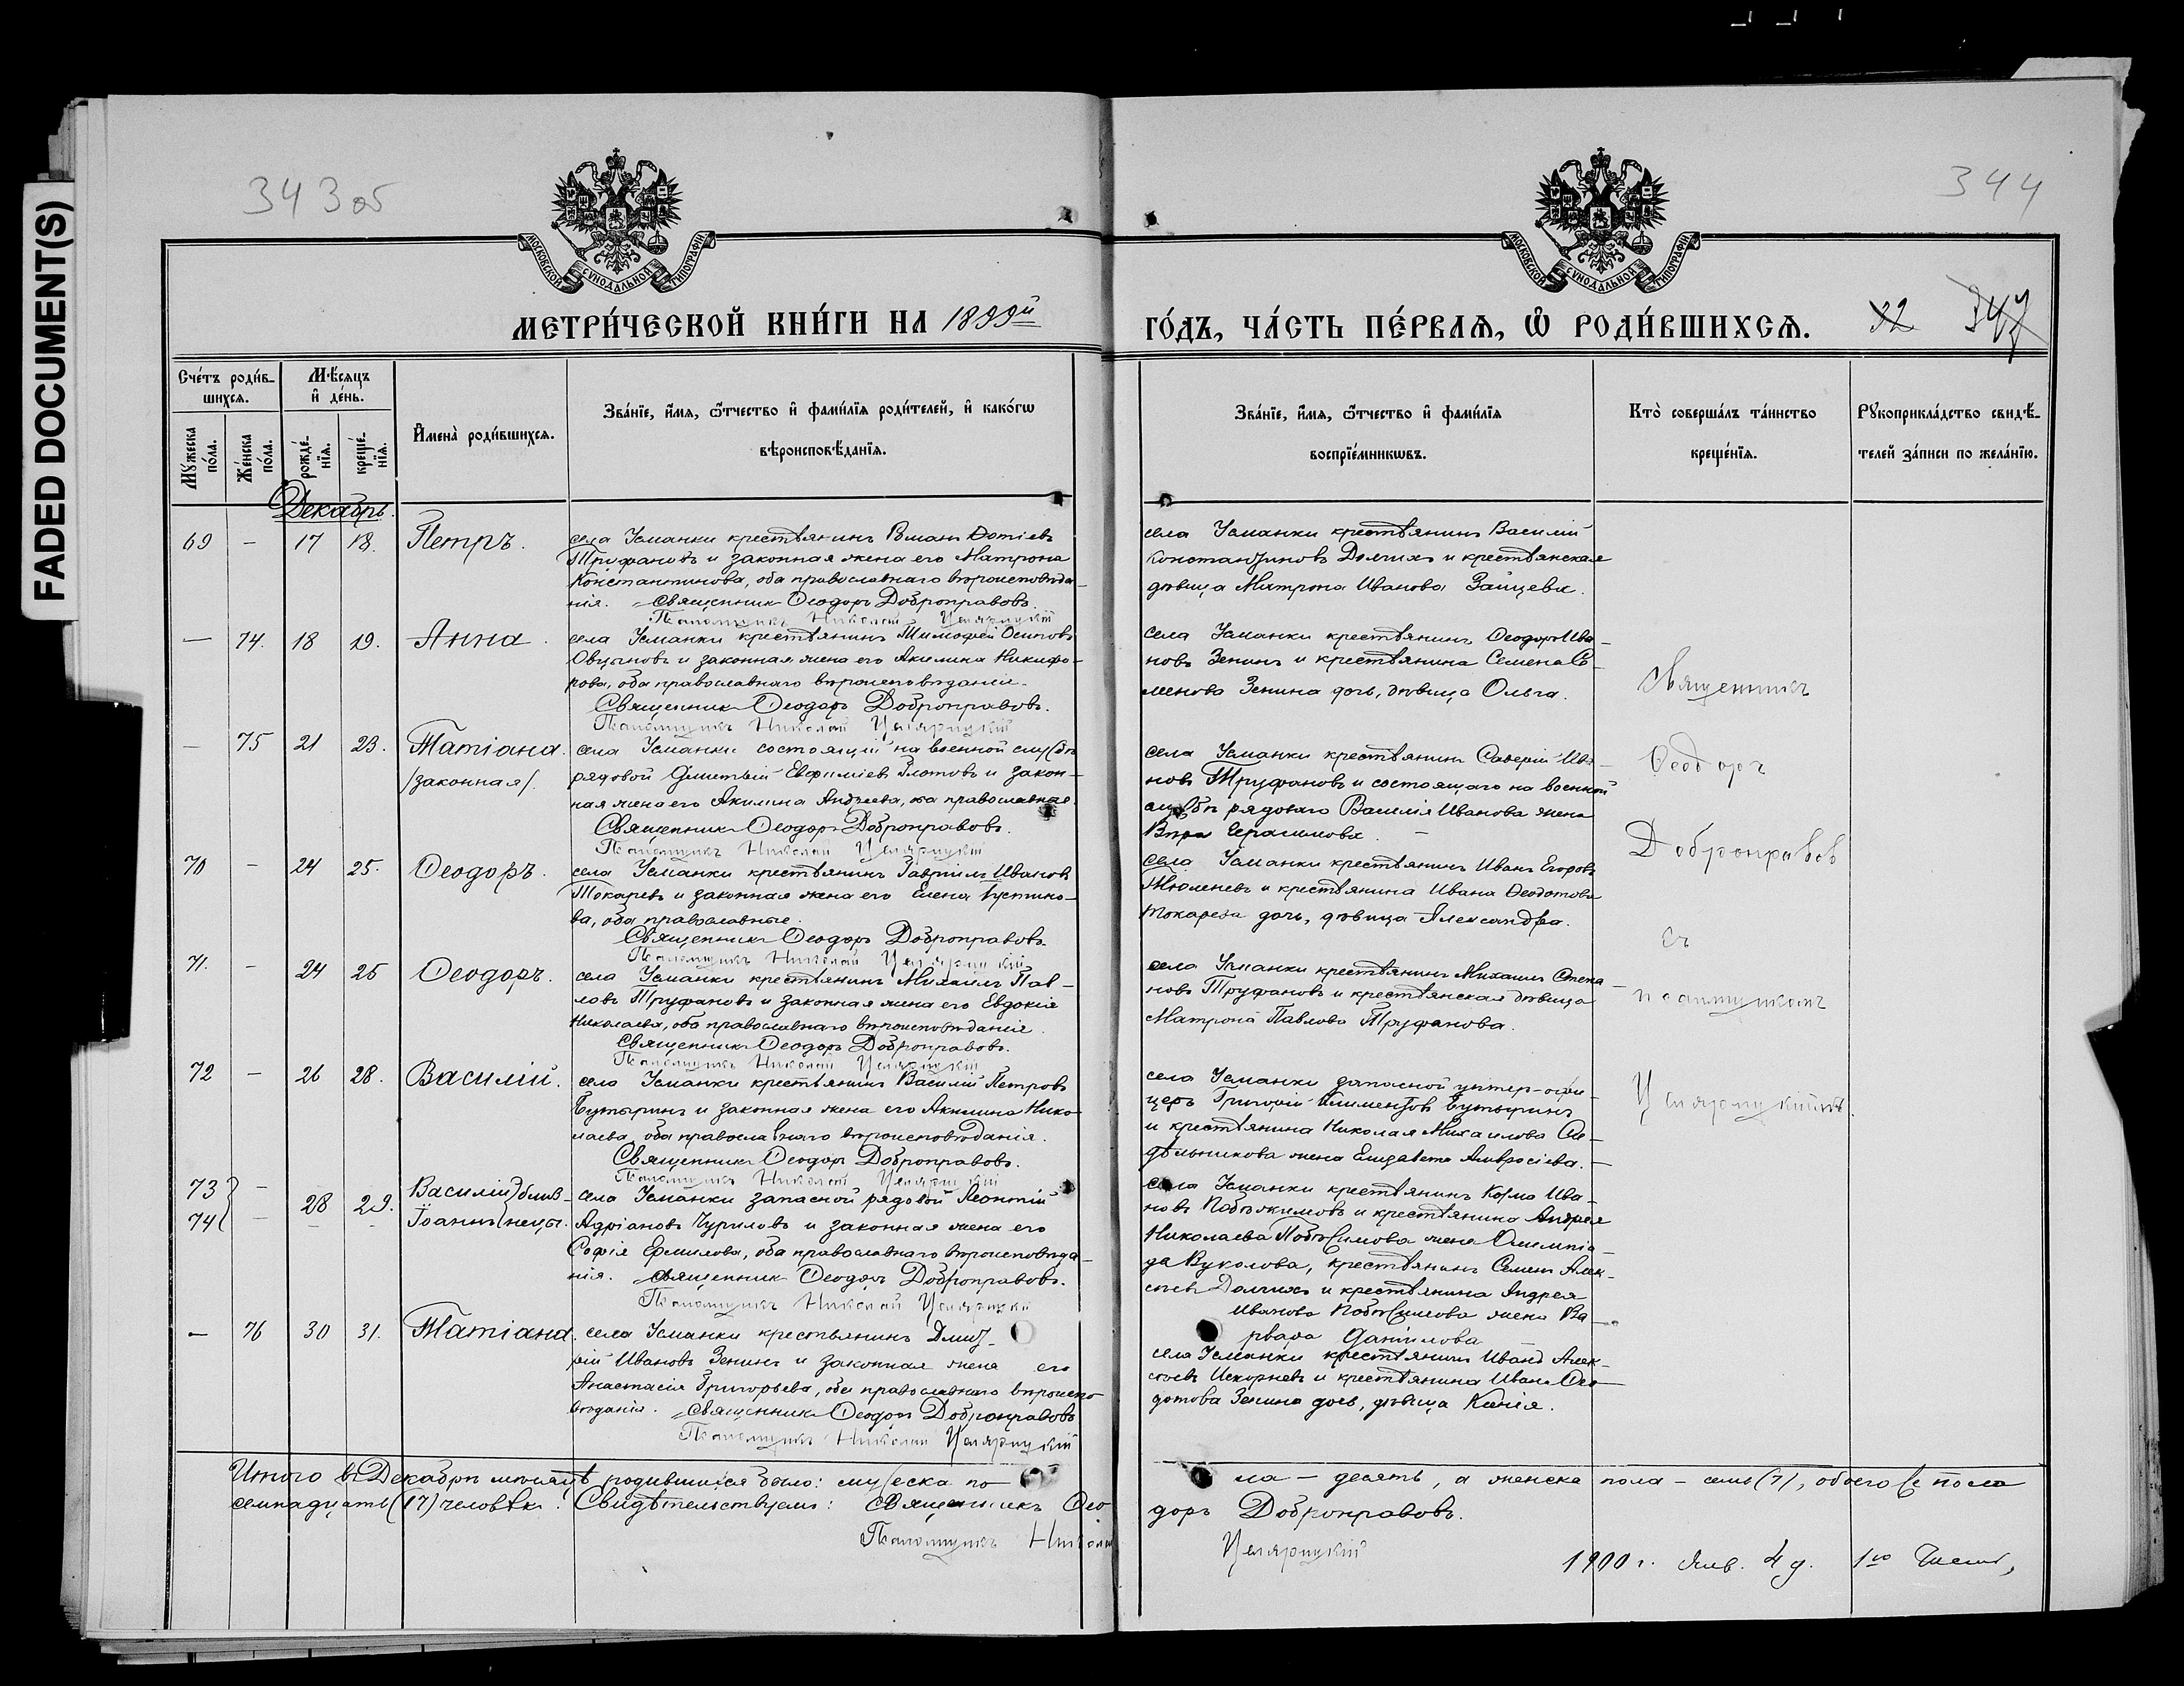 FADED DOCUMENT(S)
343 об
344
МОСКОВСКОЙ СѴНОДАЛЬНОЙ ТИПОГРАФІИ
МОСКОВСКОЙ СѴНОДАЛЬНОЙ ТИПОГРАФІИ
МЕТРИ́ЧЕСКОЙ КНИ́ГИ НА 1899й
ГО́ДЪ, ЧА́СТЬ ПЕ́РВАѦ, Ѡ҆ РОДИ́ВШИХСѦ.
347
Сче́тъ роди́в-
шихсѧ.
Мꙋ́жеска по́ла.
Же́нска по́ла.
Мѣ́сяцъ
и҆ де́нь.
рожде́-
нїѧ.
креще́-
нїѧ.
И҆мена̀ роди́вшихсѧ.
Зва́нїе, и҆́мѧ, ѻ҆́тчество и҆ фами́лїѧ роди́телей, и҆ како́гѡ
вѣроисповѣ́данїѧ.
Зва́нїе, и҆́мѧ, ѻ҆́тчество и҆ фами́лїѧ
воспрїе́мникѡвъ.
Кто̀ соверша́лъ та́инство
креще́нїѧ.
Рꙋкоприкла́дство свидѣ́-
телей за́писи по жела́нїю.
Декабрь.
69 – 17 18. Петръ.
села Усманки крестьянинъ Романъ Ѳотіевъ
Труфановъ и законная жена его Матрона
Константинова, оба православнаго вѣроисповѣда-
нія. Священникъ Ѳеодоръ Добронравовъ.
Псаломщикъ Николай
села Усманки крестьянинъ Василій
Константиновъ Долгихъ и крестьянская
дѣвица Матрона Иванова Зайцева.
— 74. 18 19. Анна.
села Усманки крестьянинъ Тимофей Осиповъ
Овцыновъ и законная жена его Акилина Никифо-
рова, оба православнаго вѣроисповѣданія.
Священникъ Ѳеодоръ Добронравовъ.
Псаломщикъ Николай
села Усманки крестьянинъ Ѳеодоръ Ива-
новъ Зенинъ и крестьянина Семена Се-
менова Зенина дочь, дѣвица Ольга.
— 75 21 23. Татіана.
/законная/.
села Усманки состоящій на военной службѣ
рядовой Дометій Евфиміевъ Глотовъ и закон-
ная жена его Акилина Андреева, оба православные.
Священникъ Ѳеодоръ Добронравовъ.
Псаломщикъ Николай
села Усманки крестьянинъ Саверій Ива-
новъ Труфановъ и состоящаго на военной
службѣ рядоваго Василія Иванова жена
Вѣра Герасимова. –
70 – 24 25. Ѳеодоръ.
села Усманки крестьянинъ Гавріилъ Ивановъ
Токаревъ и законная жена его Елена Іустино-
ва, оба православные.
Священникъ Ѳеодоръ Добронравовъ.
Псаломщикъ Николай
села Усманки крестьянинъ Иванъ Егоровъ
Тюленевъ и крестьянина Ивана Ѳеодотова
Токарева дочь, дѣвица Александра.
71. – 24 25 Ѳеодоръ.
села Усманки крестьянинъ Михаилъ Пав-
ловъ Труфановъ и законная жена его Евдокія
Николаева, оба православнаго вѣроисповѣданія.
Священникъ Ѳеодоръ Добронравовъ.
Псаломщикъ Николай
села Усманки крестьянинъ Михаилъ Степа-
новъ Труфановъ и крестьянская дѣвица
Матрона Павлова Труфанова.
72 – 26 28. Василій.
села Усманки крестьянинъ Василій Петровъ
Бутыринъ и законная жена его Акилина Нико-
лаева, оба православнаго вѣроисповѣданія.
Священникъ Ѳеодоръ Добронравовъ.
Псаломщикъ Николай
села Усманки запасной унтер-офи-
церъ Григорій Климентовъ Бутыринъ
и крестьянина Николая Михаилова Си-
дѣльникова жена Елизавета Амвросіева. –
73 –
74 – 28 29. Василій } близ-
Іоаннъ } нецы.
села Усманки запасной рядовой Леонтій
Адріановъ Чуриловъ и законная жена его
Софія Ермилова, оба православнаго вѣроисповѣда-
нія. Священникъ Ѳеодоръ Добронравовъ.
Псаломщикъ Николай
села Усманки крестьянинъ Косма Ива-
новъ Побѣжимовъ и крестьянина Андрея
Николаева Побѣжимова жена Олимпіа-
да Вуколова, крестьянинъ Семенъ Алек-
сѣевъ Долгихъ и крестьянина Андрея
Иванова Побѣжимова жена Ва-
рвара Даніилова
— 76 30 31. Татіана.
села Усманки крестьянинъ Дмит-
рій Ивановъ Зенинъ и законная жена его
Анастасія Григорьева, оба православнаго вѣроиспо-
вѣданія. Священникъ Ѳеодоръ Добронравовъ
Псаломщикъ Николай
села Усманки крестьянинъ Иванъ Алек-
сѣевъ и крестьянина Ивана Ѳео-
дотова Зенина дочь, дѣвица Ксенія.
Священникъ
Ѳеодоръ
Добронравовъ
съ
псаломщикомъ
Итого въ Декабрѣ мѣсяцѣ родившихся было: мужеска по-
ла – десять, а женска пола – семь (7), обоего же пола
семнадцать (17) человѣкъ. Свидѣтельствуемъ: Священникъ Ѳео-
доръ Добронравовъ.
Псаломщикъ Николай
1900 г. Янв. 4 д.